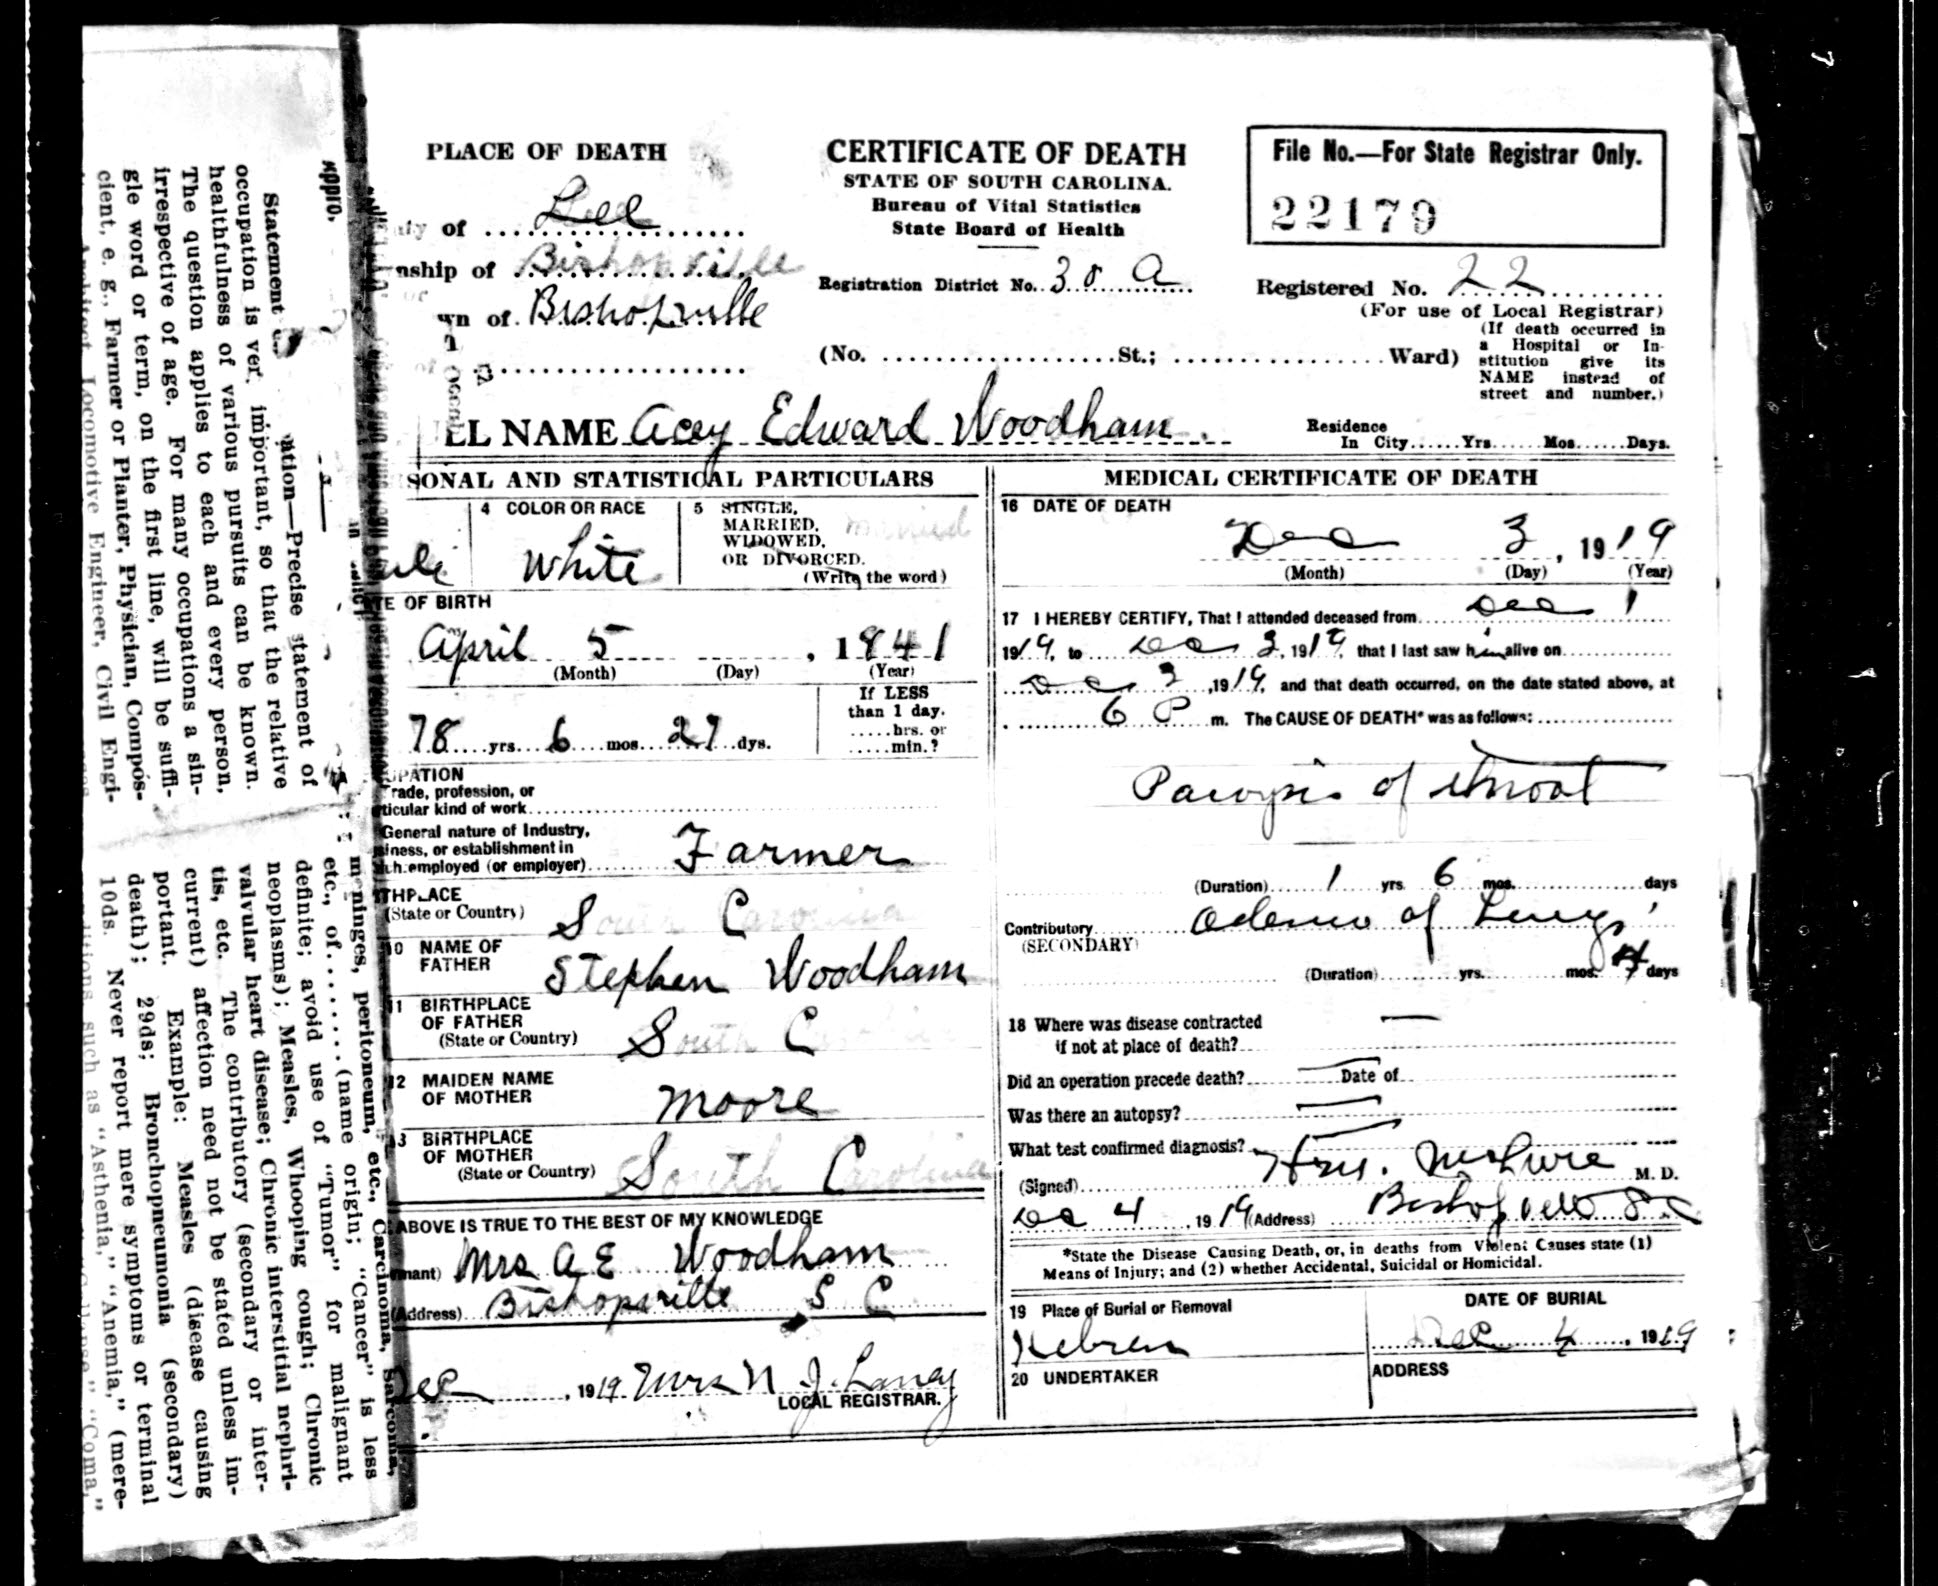 PLACE OF DEATH
of Lee
nship of Bishopville
wn of Bishopville
CERTIFICATE OF DEATH
STATE OF SOUTH CAROLINA.
Bureau of Vital Statistics
State Board of Health
Registration District No. 30 A
File No.—For State Registrar Only.
22179
Registered No. 22
(For use of Local Registrar)
(If death occurred in
a Hospital or In-
stitution give its
NAME instead of
street and number.)
(No. St.; Ward)
LL NAME Acey Edward Woodham
Residence
In City Yrs. Mos. Days.
SONAL AND STATISTICAL PARTICULARS
4 COLOR OR RACE
White
5 SINGLE,
MARRIED,
WIDOWED,
OR DIVORCED.
(Write the word)
married
TE OF BIRTH
April 5, 1841
(Month) (Day) (Year)
78 yrs. 6 mos. 27 dys.
If LESS
than 1 day,
hrs. or
min.?
UPATION
rade, profession, or
ticular kind of work
General nature of Industry,
iness, or establishment in
ch employed (or employer) Farmer
THPLACE
(State or Country) South Carolina
10 NAME OF
FATHER Stephen Woodham
11 BIRTHPLACE
OF FATHER
(State or Country) South Carolina
12 MAIDEN NAME
OF MOTHER Moore
13 BIRTHPLACE
OF MOTHER
(State or Country) South Carolina
ABOVE IS TRUE TO THE BEST OF MY KNOWLEDGE
mant) Mrs A E Woodham
(Address) Bishopville S C
Dec, 1919 Mrs N. J. Laney
LOCAL REGISTRAR.
MEDICAL CERTIFICATE OF DEATH
16 DATE OF DEATH
Dec 3, 1919
(Month) (Day) (Year)
17 I HEREBY CERTIFY, That I attended deceased from Dec 1
1919, to Dec 3, 1919, that I last saw him alive on
Dec 3, 1919, and that death occurred, on the date stated above, at
6 P m. The CAUSE OF DEATH* was as follows:
of throat
(Duration) 1 yrs. 6 mos. days
Contributory of Lungs
(SECONDARY)
(Duration) yrs. mos. 4 days
18 Where was disease contracted
if not at place of death? —
Did an operation precede death? — Date of
Was there an autopsy? —
What test confirmed diagnosis? —
(Signed) McLure M. D.
Dec 4, 1919 (Address) Bishopville S.C
*State the Disease Causing Death, or, in deaths from Violent Causes state (1)
Means of Injury; and (2) whether Accidental, Suicidal or Homicidal.
19 Place of Burial or Removal
Hebren
DATE OF BURIAL
Dec 4, 1919
20 UNDERTAKER
ADDRESS
Statement
ation—Precise statement of
occupation is very important, so that the relative
healthfulness of various pursuits can be known.
The question applies to each and every person,
irrespective of age. For many occupations a sin-
gle word or term, on the first line, will be suffi-
cient, e. g., Farmer or Planter, Physician, Compos-
Architect, Locomotive Engineer, Civil Engi-
meninges, peritoneum, etc., Carcinoma, Sarcoma,
etc., of (name origin; "Cancer" is less
definite; avoid use of "Tumor" for malignant
neoplasms); Measles, Whooping cough; Chronic
valvular heart disease; Chronic interstitial nephri-
tis, etc. The contributory (secondary or inter-
current) affection need not be stated unless im-
portant. Example: Measles (disease causing
death); 29ds; Bronchopneumonia (secondary)
10ds. Never report mere symptoms or terminal
ditions, such as "Asthenia," "Anemia," (mere-
"Coma,"